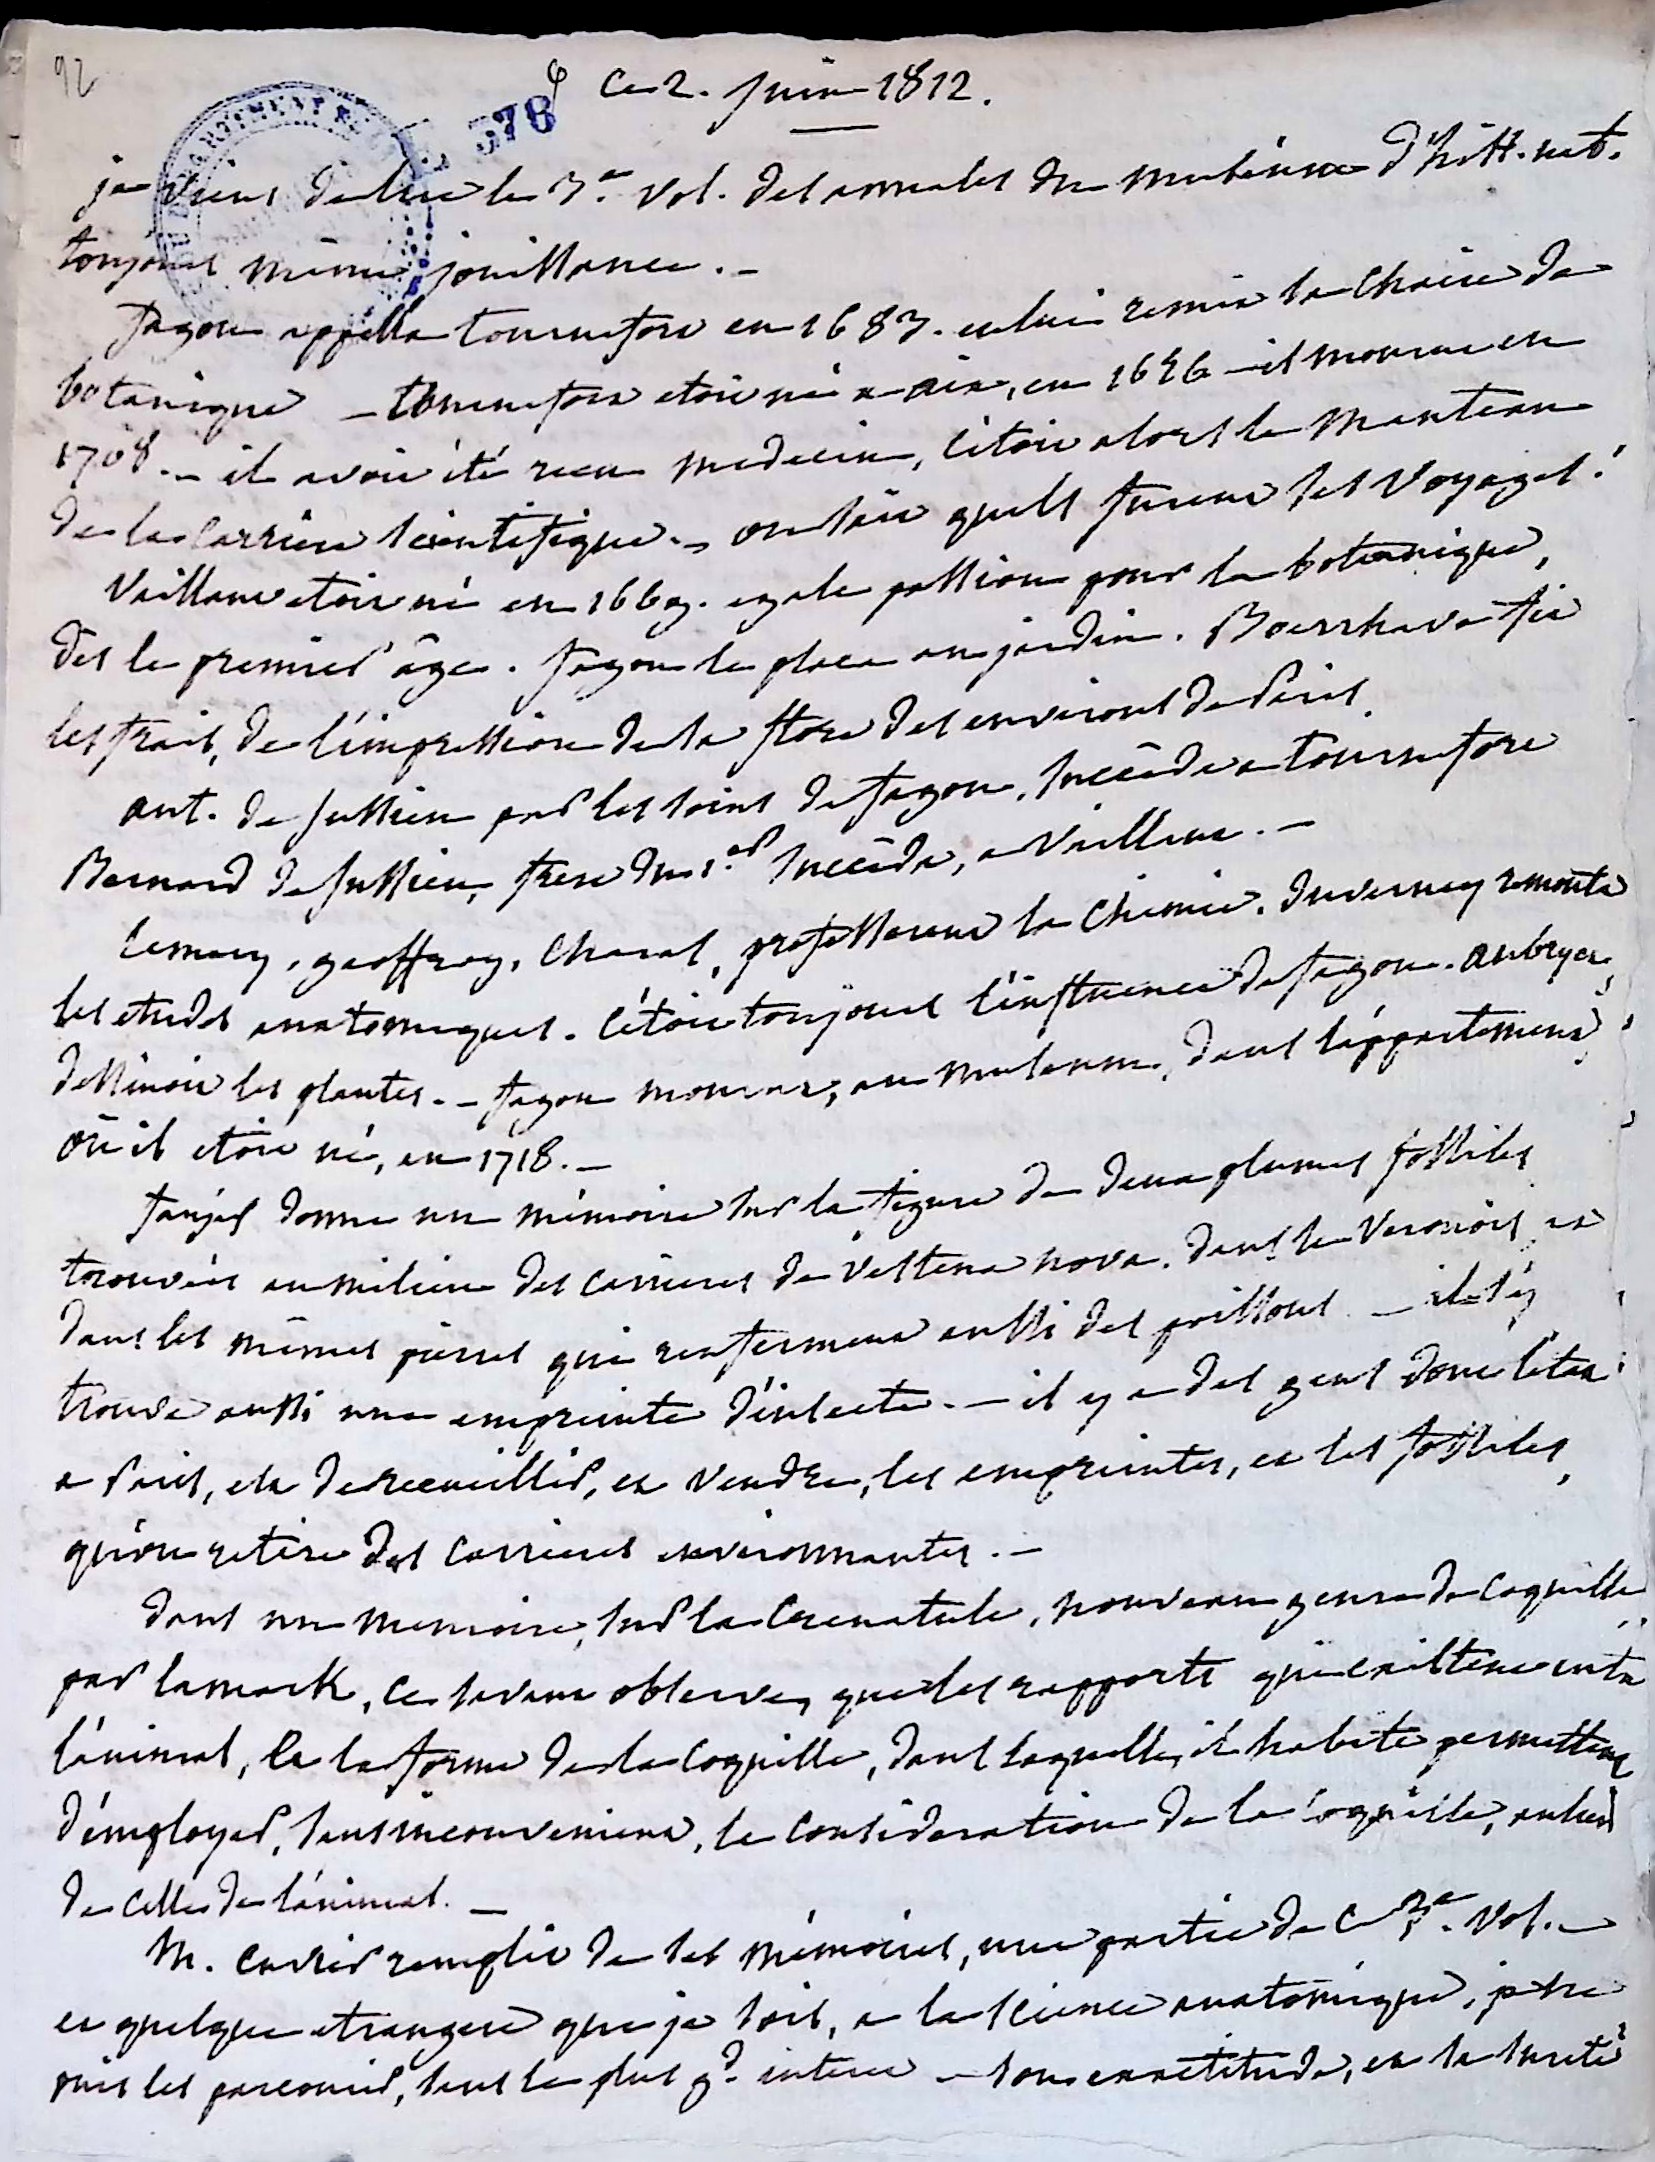 92
378
ce 2. juin 1812.
je viens de lire le 3.e vol. des annales du museum d'hist. nat.
toujours même jouissance. –
fagon appella tournefort en 1683. et lui remit la chaire de
botanique – tournefort etoit né a aix, en 1656 – il mourut en
1708. – il avoit été recu medecin, c'étoit alors le manteau
de la carriere scientifique. – on sait quels furent ses voyages.
Vaillant etoit né en 1669. egale passion pour la botanique,
dès le premier âge. fagon le placa au jardin. Boerrhave fit
les frais, de l'impression de sa flore des environs de Paris.
ant. de jussieu par les soins de fagon, succéda a tournefort
Bernard de jussieu, frere du 1.er succéda, a Vaillant. –
Lemery, geoffroy, Charas, professerent la chimie. duverney remonta
les etudes anatomiques. c'étoit toujours l'influence de fagon. aubryet
dessinoit les plantes. – fagon mourut, au museum, dans l'appartement
où il etoit né, en 1718. –
faujas donne un mémoire sur la figure de deux plumes fossiles
trouvées au milieu des carrieres de Vestena nova. dans le Veronois et
dans les mêmes pierres qui renferment aussi des poissons – il s'y
trouve aussi une empreinte d'insecte. – il y a des gens dont l'état
a Paris, est de recueillir, et vendre, les empreintes, et les fossiles,
qu'on retire des carrieres environnantes. –
dans un memoire, sur la Crenatule, nouveau genre de coquille
par lamark, ce savant observe, que les rapports qui existent entre
l'animal, et la forme de la coquille, dans laquelle, il habite permettent
d'employer, sans inconvenient, la consideration de la coquille, au lieu
de celle de l'animal. –
M. cuvier remplit de ses mémoires, une partie de ce 3.e vol. –
et quelque etrangere que je sois, a la science anatomique, je ne
puis les parcourir, sans le plus gd. interet – son exactitude, et la sureté